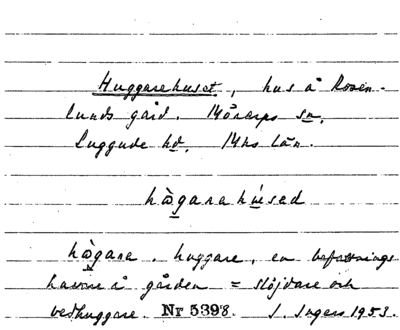 Huggarehuset, hus å Rosen-
lunds gård. Mörarps sn,
Luggude hd, Mhs län.
hògarahúsed
hògara. huggare, en befattnings
havare å gården = slöjdare och
vedhuggare. Nr 5398. I. Ingers 1953.